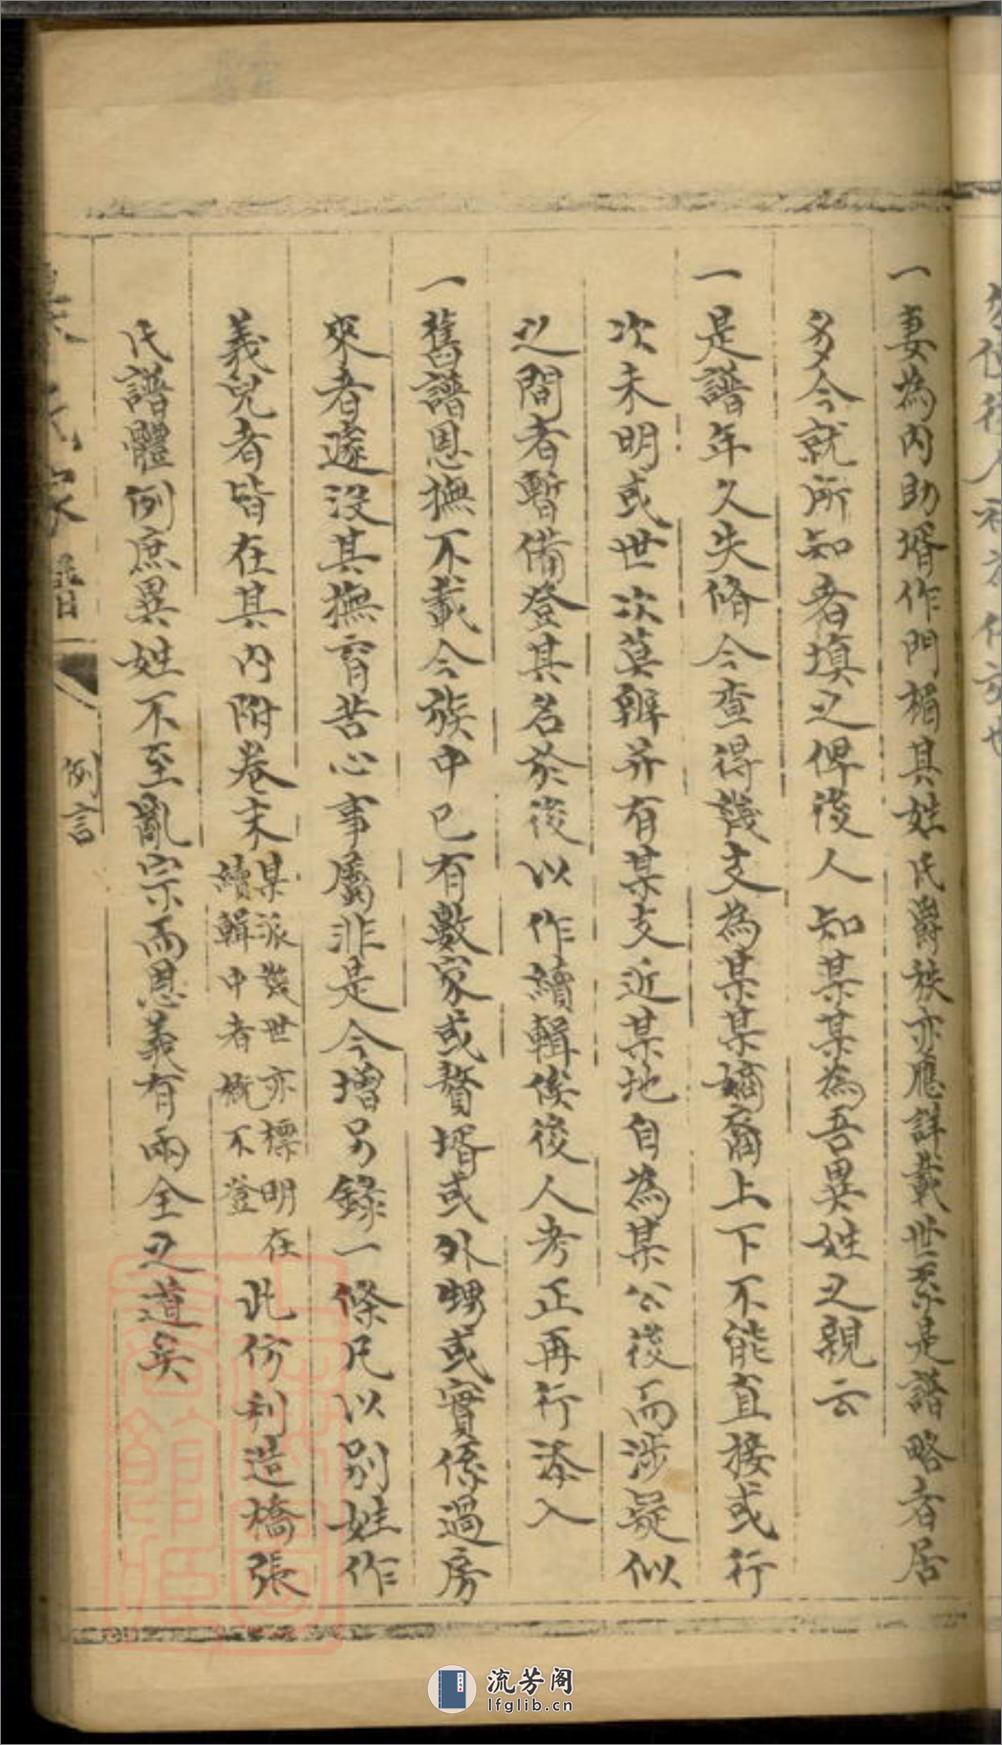 一妻為內助壻作門楣其姓氏爵秩亦應詳載世系是譜略者居
多今就所知者填之俾後人知某某為吾異姓之親云
一是譜年久失脩今查得幾支為某某嫡裔上下不能直接或行
次未明或世次莫辨并有某支近某地自為某公後而涉疑似
之間者暫備登其名於後以作續輯俟後人考正再行添入
一舊譜恩撫不載今族中已有數家或贅壻或外甥或實係過房
來者遽沒其撫育苦心事屬非是今增另錄一條凡以別姓作
義兒者皆在其內附卷末某派幾世亦標明在續輯中者槪不登此仿利造橋張
氏譜體例庶異姓不至亂宗而恩義有兩全之道矣
氏家譜
例言
流芳阁
lfglib.cn